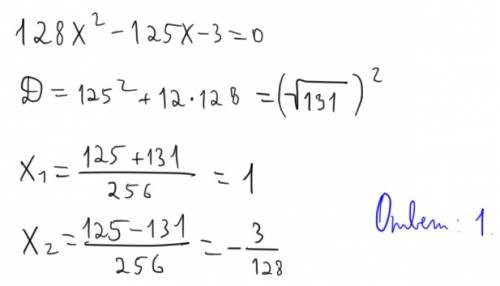 128x² - 125x - 3 = 0
D = 125² + 12 · 128 = (√131)²
x₁ = (125 + 131)/256 = 1
x₂ = (125 - 131)/256 = -3/128
Ответ: 1.